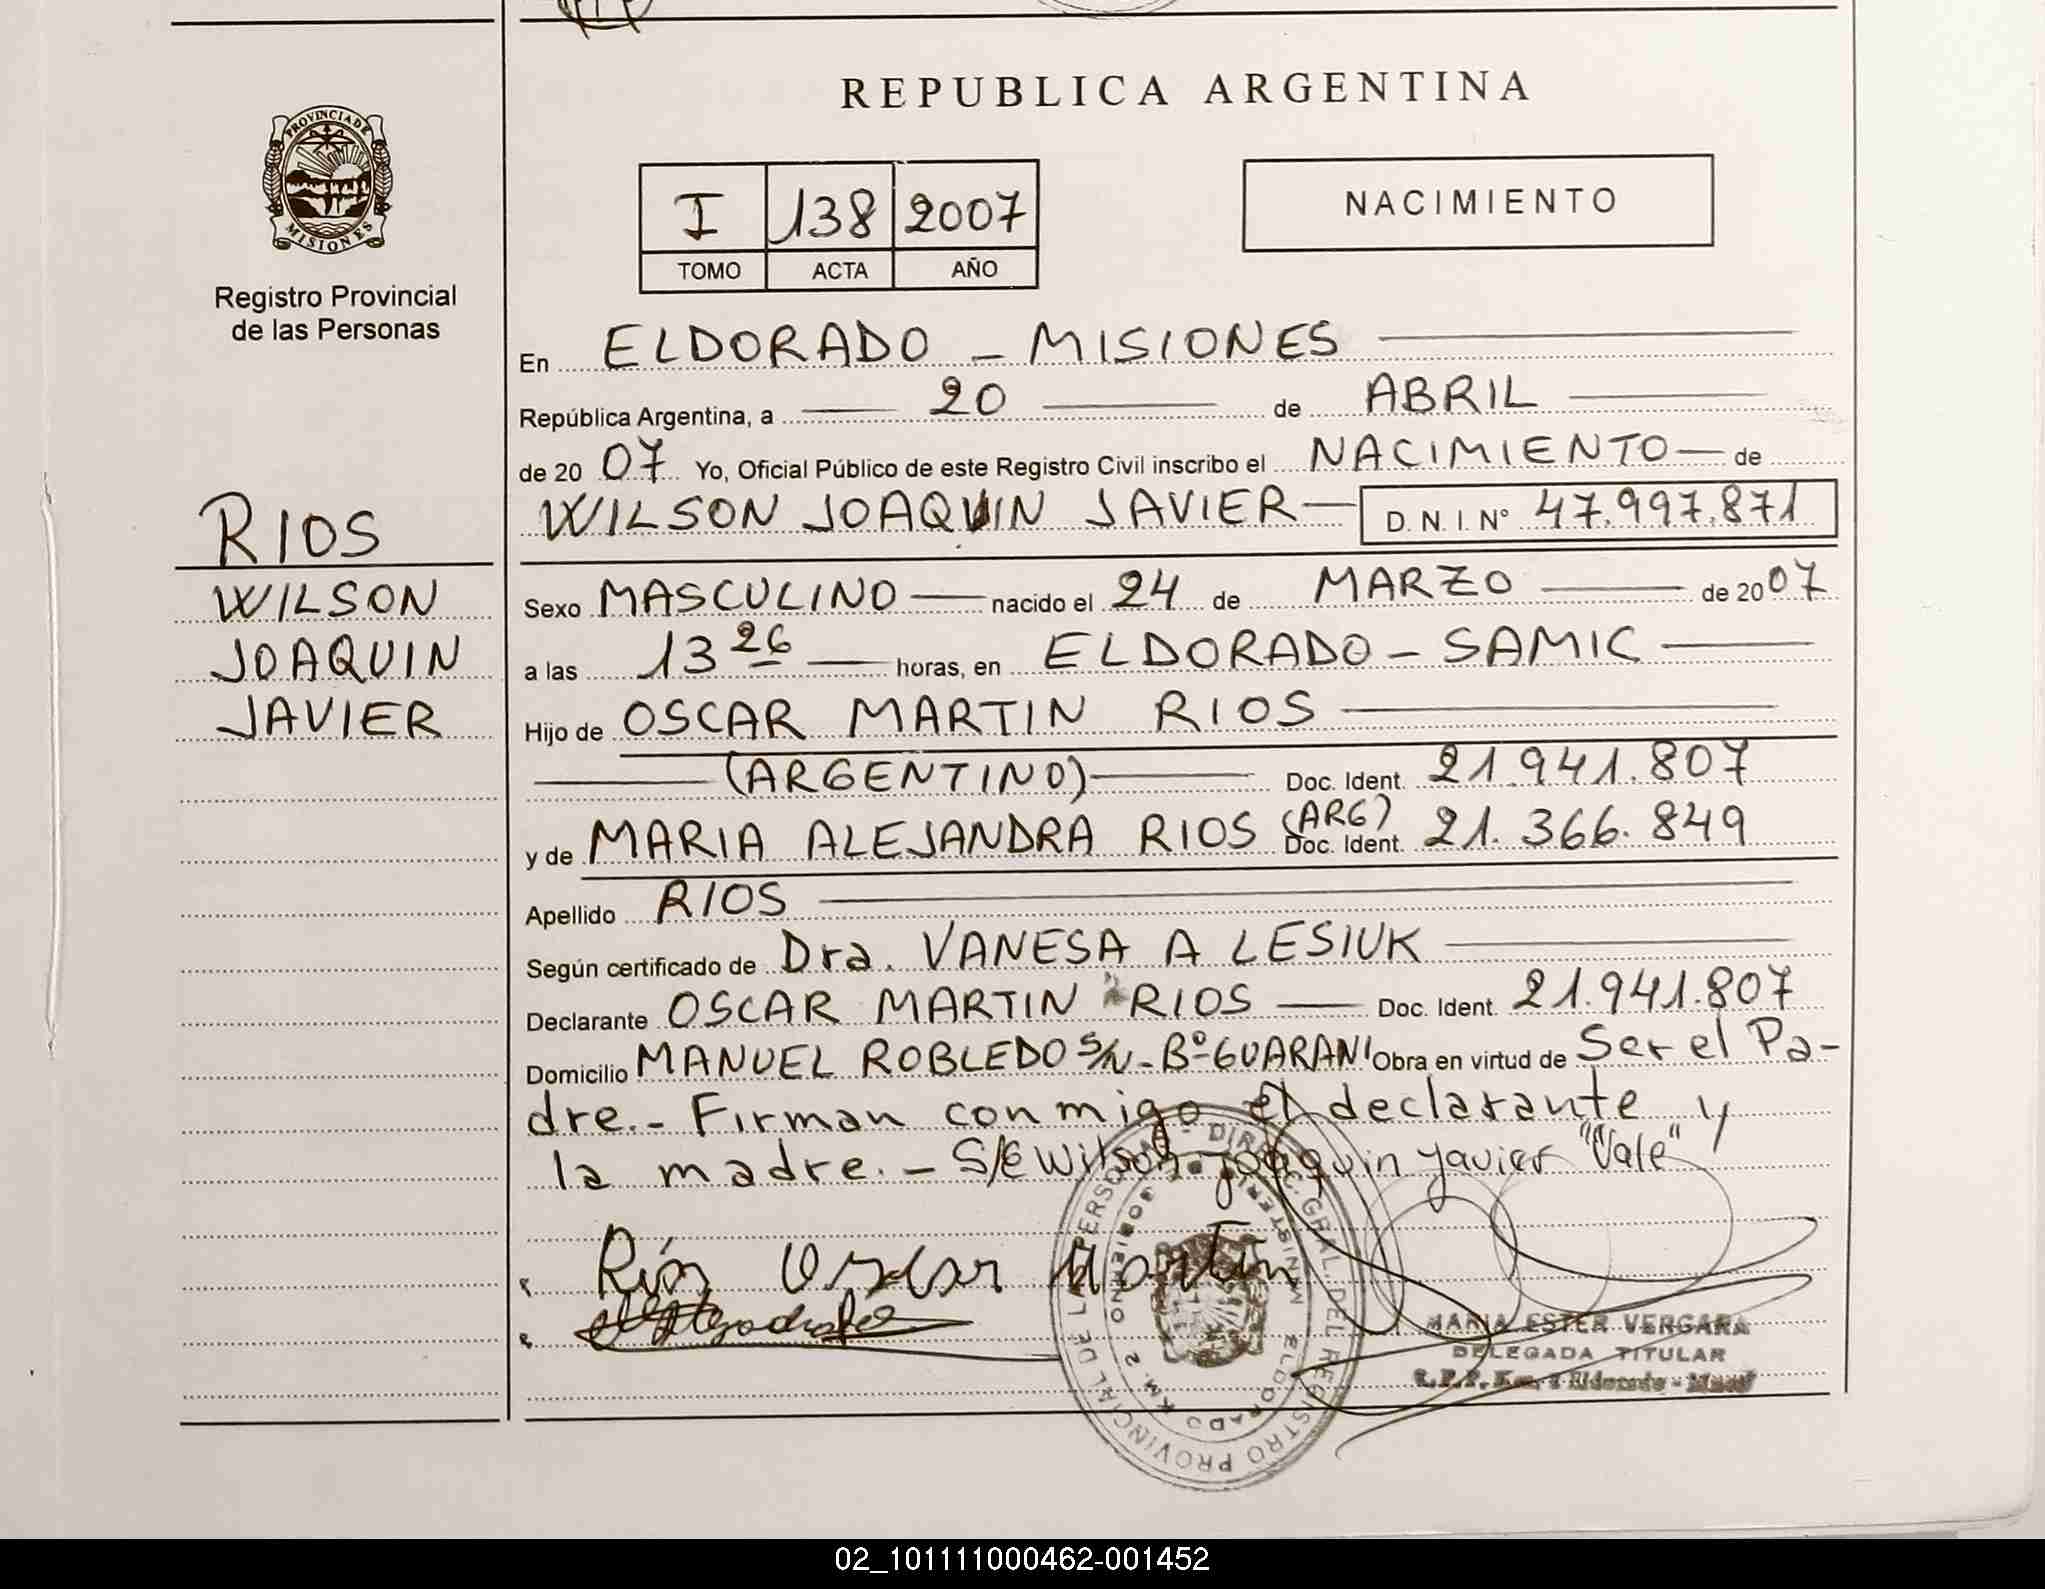 REPUBLICA ARGENTINA
PROVINCIA DE
MISIONES
Registro Provincial
de las Personas
I 138 2007
TOMO ACTA AÑO
NACIMIENTO
RIOS
WILSON
JOAQUIN
JAVIER
En ELDORADO - MISIONES
República Argentina, a 20 de ABRIL
de 20 07 Yo, Oficial Público de este Registro Civil inscribo el NACIMIENTO de
WILSON JOAQUIN JAVIER D. N. I. N° 47.997.871
Sexo MASCULINO nacido el 24 de MARZO de 2007
a las 13 26 horas, en ELDORADO - SAMIC
Hijo de OSCAR MARTIN RIOS
(ARGENTINO) Doc. Ident. 21.941.807
y de MARIA ALEJANDRA RIOS (ARG) Doc. Ident. 21.366.849
Apellido RIOS
Según certificado de Dra. VANESA A LESIUK
Declarante OSCAR MARTIN RIOS Doc. Ident. 21.941.807
Domicilio MANUEL ROBLEDO S/N - Bº GUARANI Obra en virtud de Ser el Pa-
dre.- Firman conmigo el declarante y
la madre.- S/E Wilson Joaquin Javier "Vale"
Ríos Oscar Martin
MARIA ESTER VERGARA
DELEGADA TITULAR
DIREC. GRAL. DEL REGISTRO PROVINCIAL DE LAS PERSONAS
MINISTERIO GOBIERNO
ELDORADO KM. 2
02_101111000462-001452